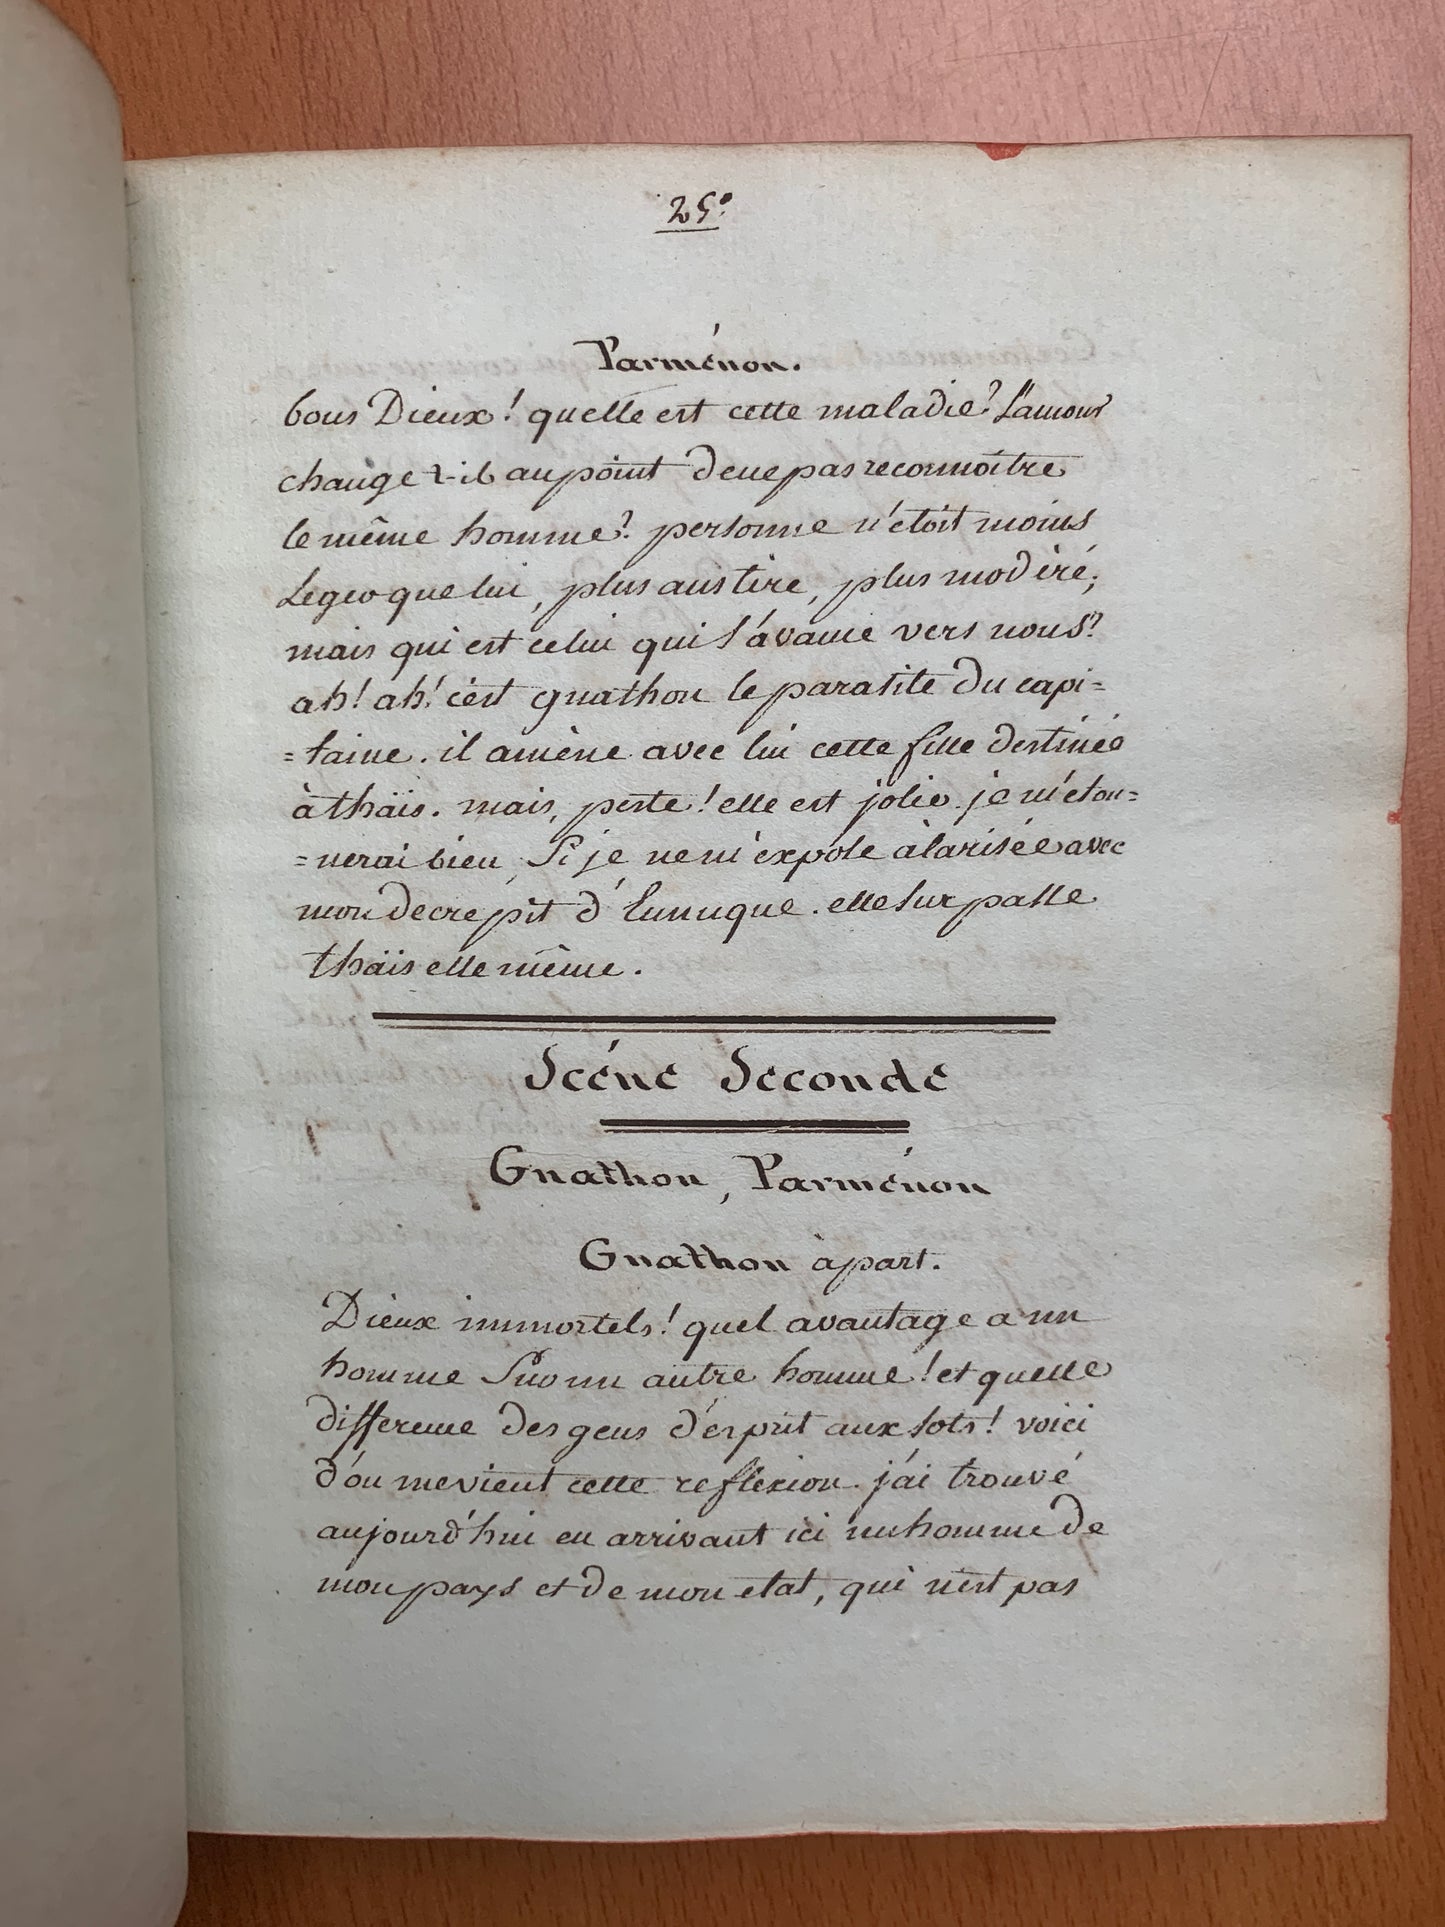 25.
Parménon.
bons Dieux! quelle est cette maladie? L'amour
change t-il au point de ne pas reconnoître
le même homme? personne n'étoit moins
Leger que lui, plus austère, plus modéré;
mais qui est celui qui s'avance vers nous?
ah! ah! c'est gnathon le parasite du capi=
=taine. il amène avec lui cette fille destinée
à thaïs. mais, peste! elle est jolie. je m'éton=
=nerai bien, Si je ne m'expose à la risée avec
mon decrépit d'Eunuque. elle surpasse
thaïs elle même.
Scéne Seconde
Gnathon, Parménon
Gnathon àpart.
Dieux immortels! quel avantage a un
homme Sur un autre homme! et quelle
difference des gens d'esprit aux sots! voici
d'ou me vient cette reflexion. j'ai trouvé
aujourd'hui en arrivant ici un homme de
mon pays et de mon etat, qui n'est pas